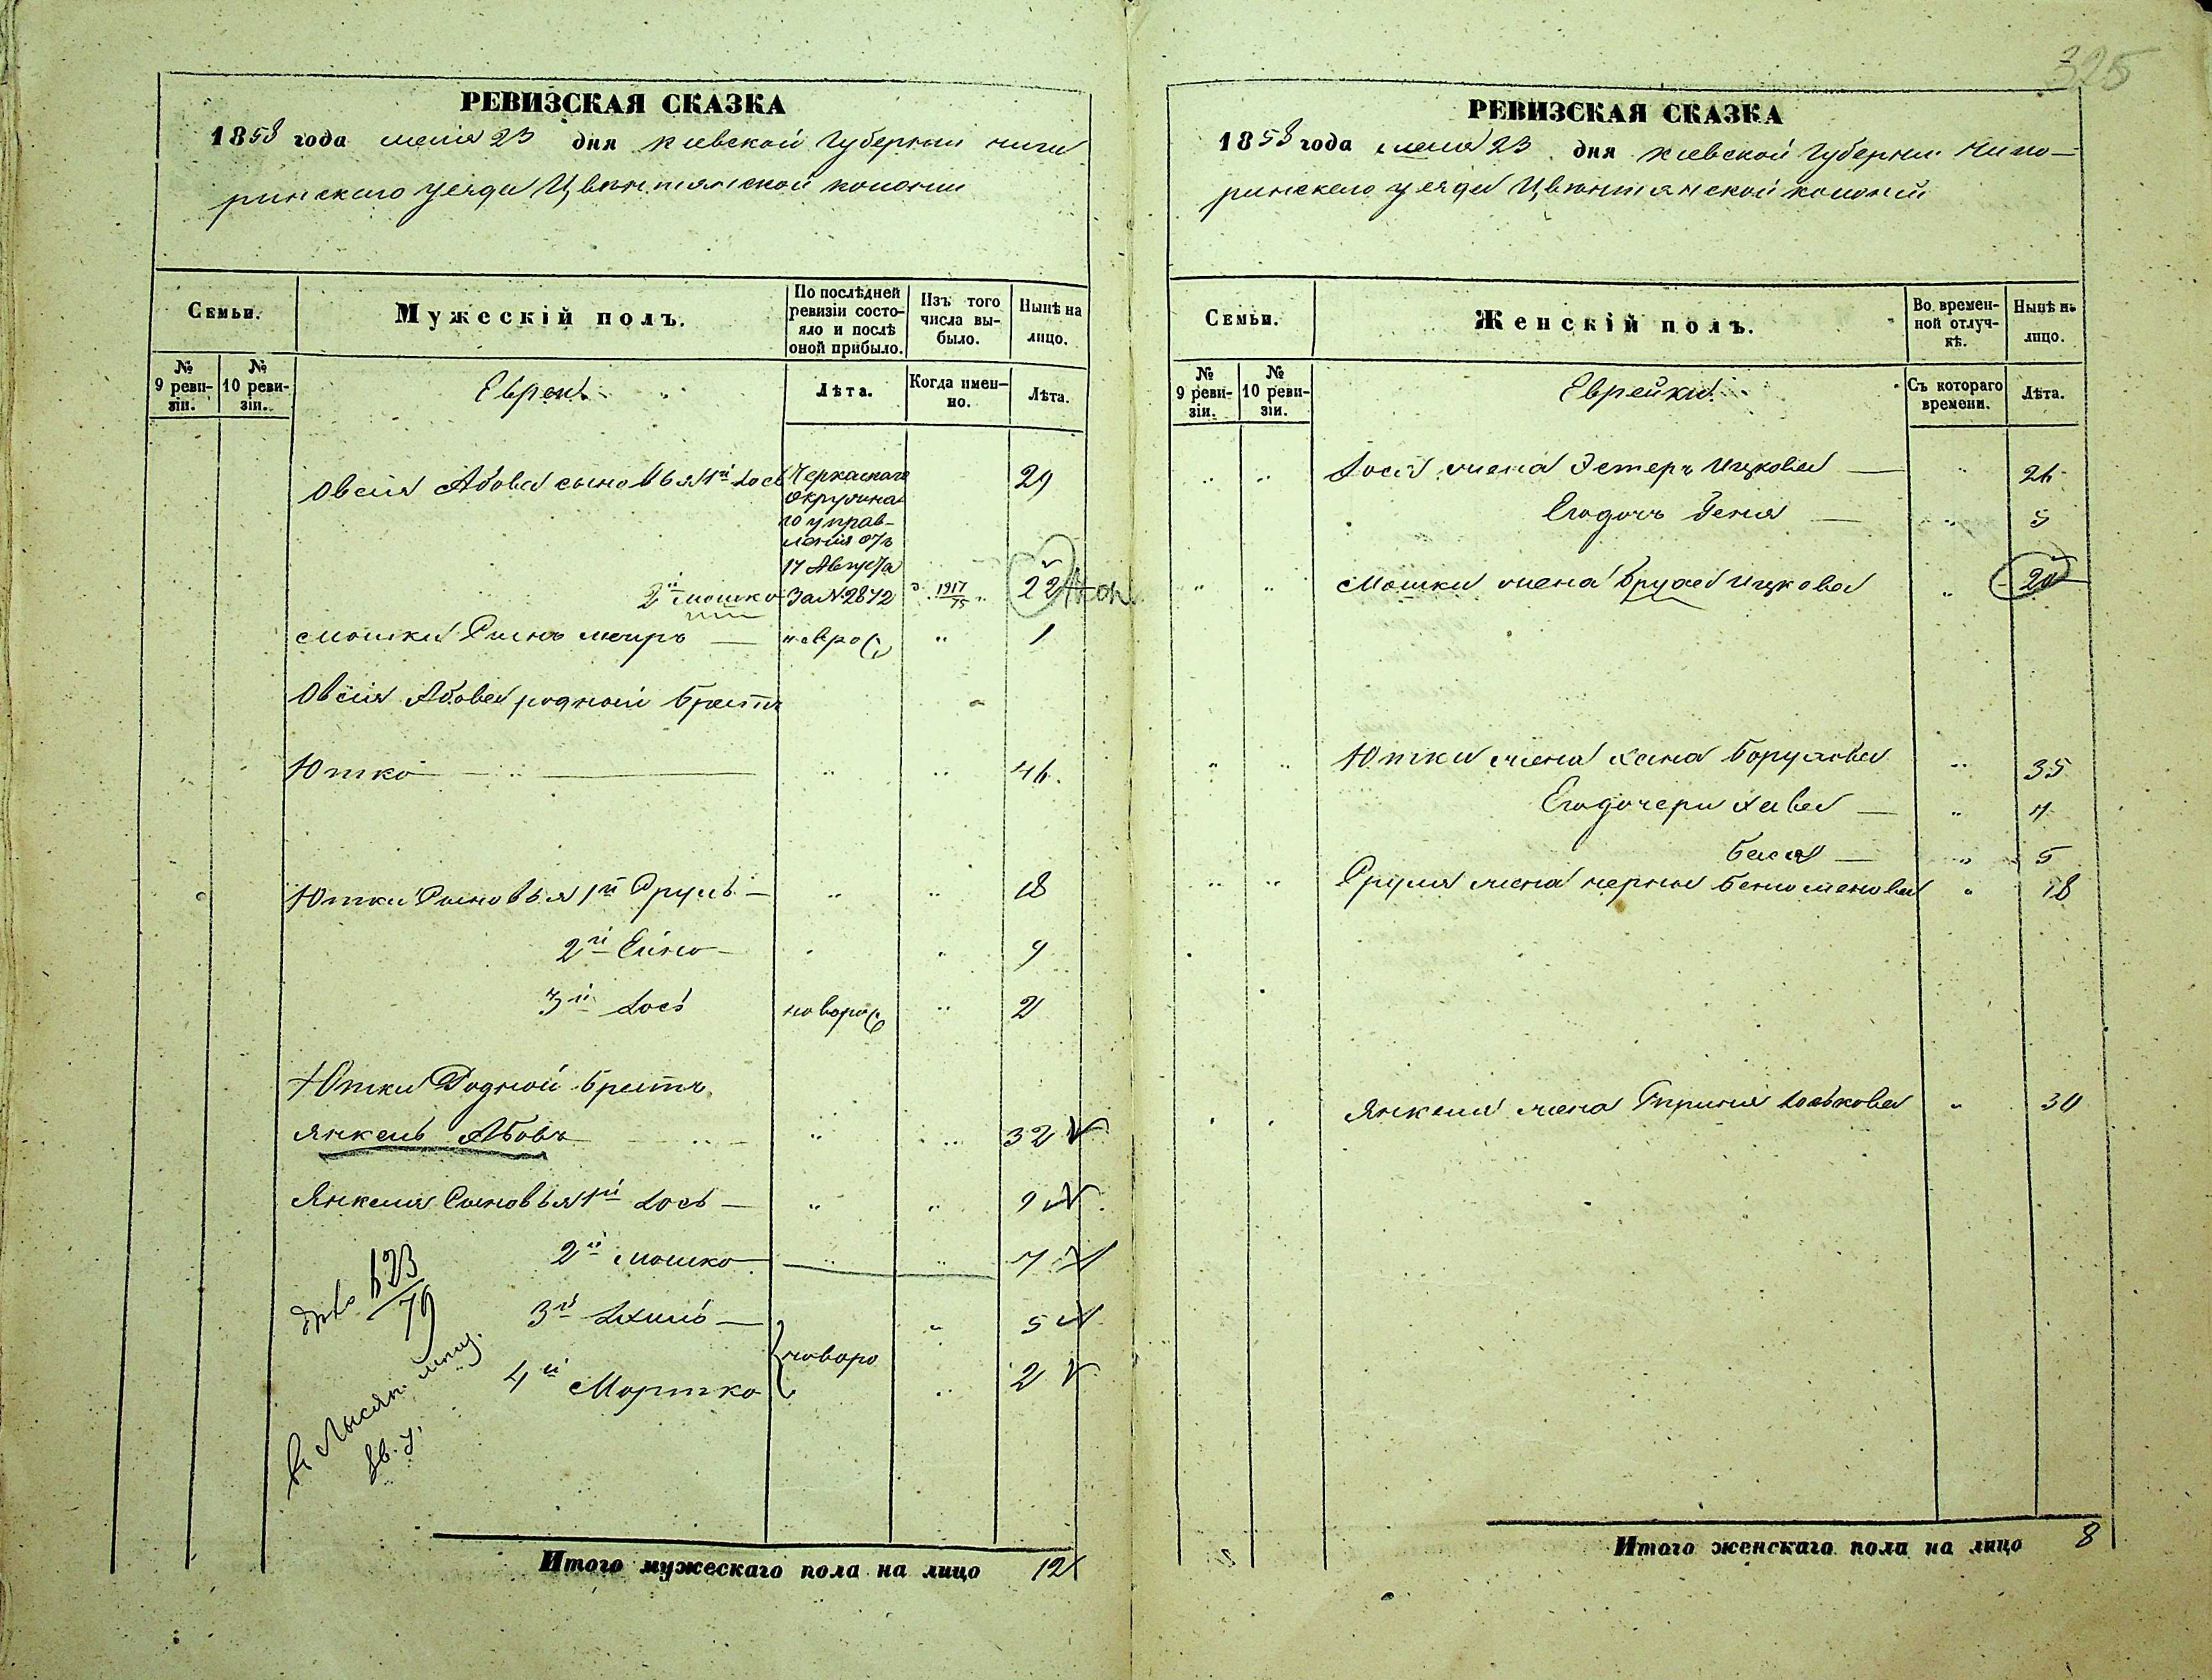 325
РЕВИЗСКАЯ СКАЗКА
1858 года мая 23 дня Киевской Губернии Чиги
ринскаго уезда Цвѣтнянской колонии
Семьи.
Мужескій полъ.
По послѣдней ревизіи состояло и послѣ оной прибыло.
Изъ того числа выбыло.
Нынѣ на лицо.
№ 9 ревизіи.
№ 10 ревизіи.
Евреи
Лѣта.
Когда именно.
Лѣта.
Овсія Абова сыновья 1й Іось Черкаскаго 29
Окружна
го управ-
ленія отъ
17 Августа
2й Мошко За №2872 1917/75 22
Мошки Сынъ Меиръ — новро " 1
Овсія Абова родной братъ
Ютко " " 46.
Ютки Сыновья 1й Сруль — " " 18
2й Ейно — " " 9
3й Іось новоро " 2
Ютки Родной братъ
Янкель Абовъ " " 32
Янкеля Сыновья 1й Іось — " " 9
2й Мошко " " 7
623/79
3й — " 5
новоро
4й Мортко " 2
в Лысян.
Зв. у.
Итого мужескаго пола на лицо 12
РЕВИЗСКАЯ СКАЗКА
1858 года мая 23 дня Киевской Губернии Чиги—
ринскаго уезда Цвѣтнянской колоніи
Семьи.
Женскій полъ.
Во временной отлучкѣ.
Нынѣ на лицо.
№ 9 ревизіи.
№ 10 ревизіи.
Еврейки
Съ котораго времени.
Лѣта.
" " Іося жена Эстеръ Ицкова — " 26
Егодочь Геня — " 5
" " Мошки жена Бруха Ицкова " 20
" " Ютки жена Хана Борухова " 35
Егодочери Хава — " 7
Бася — " 5
" " Сруля жена Черна Беньоменова " 18
Янкеля жена Іоськова " 30
Итого женскаго пола на лицо 8